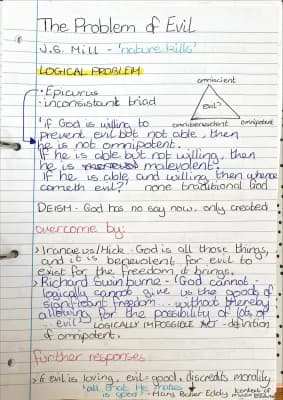 The Problem of Evil
J.S. Mill - 'nature kills'
LOGICAL PROBLEM
omniscient
· Epicurus
· inconsistant triad
evil?
omnibenevolent omnipotent
'if God is willing to
prevent evil but not able, then
he is not omnipotent.
If he is able but not willing, then
he is malevolent.
If he is able and willing, then whence
cometh evil?' none traditional God
DEISM - God has no say now, only created
overcome by:
> Iranaeus/Hick - God is all those things,
and it is benevolent for evil to
exist for the freedom it brings.
> Richard Swinburne - 'God cannot -
logically cannot give us the goods of
significant freedom... without thereby
allowing for the possibility of lots of
... evil' LOGICALLY IMPOSSIBLE ACT - definition
of omnipotent.
further responses
> if evil is loving, evil = good, discredits morality
'all that He makes
is good' - Mary Baker Eddy